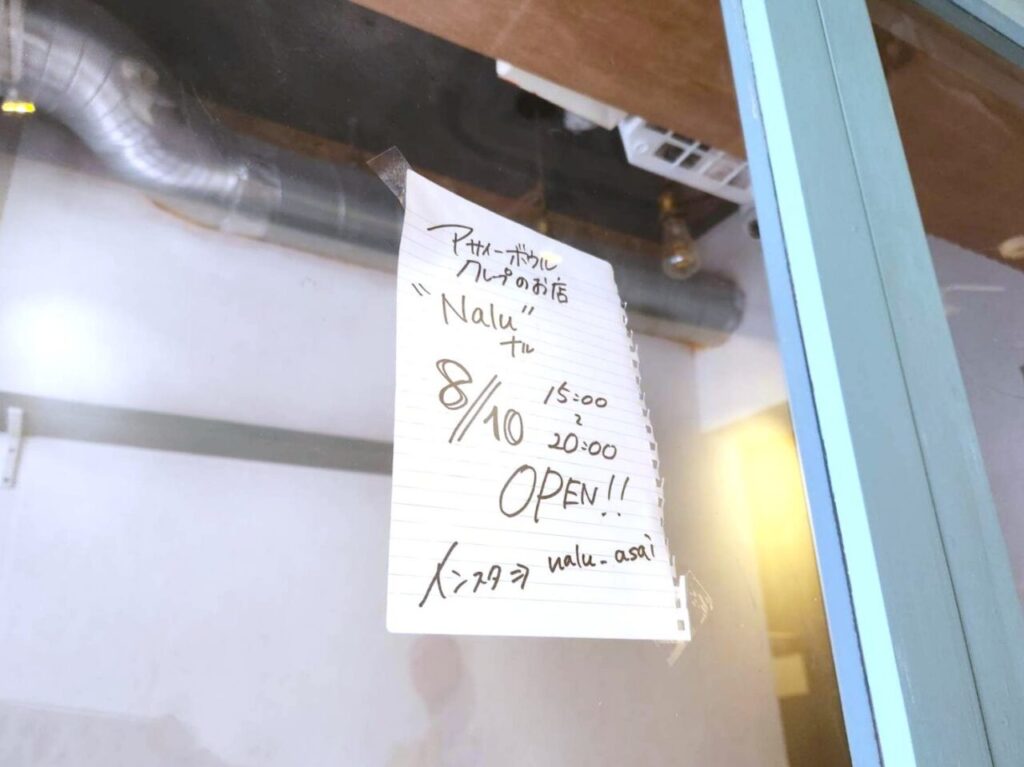 アサイーボウル
クレープのお店
"Nalu"
ナル
8/10 15:00
〜
20:00
OPEN!!
インスタ⇒ nalu_asai